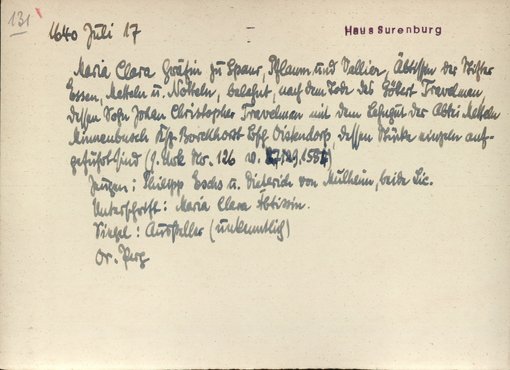 131
1640 Juli 17
Haus Surenburg
Maria Clara Gräfin zu Spaur, Pflaum und Vallier, Äbtissin der Stifter
Essen, Metteln u. Notteln, belehnt, nach dem Tode des Göbert Travelman,
dessen Sohn Johan Christopher Travelman mit dem Lehngut der Abtei Metteln
Minnenbusch Ksp. Borckhorst Bsch. Ostendorp, dessen Stücke einzeln auf-
geführt sind (s. Urk. Nr. 126 v. 1551)
Zeugen: Philipp Eschs u. Dieterich von Mulheim, beide Lic.
Unterschrift: Maria Clara Abtissin.
Siegel: Aussteller (unkenntlich)
Or. Perg